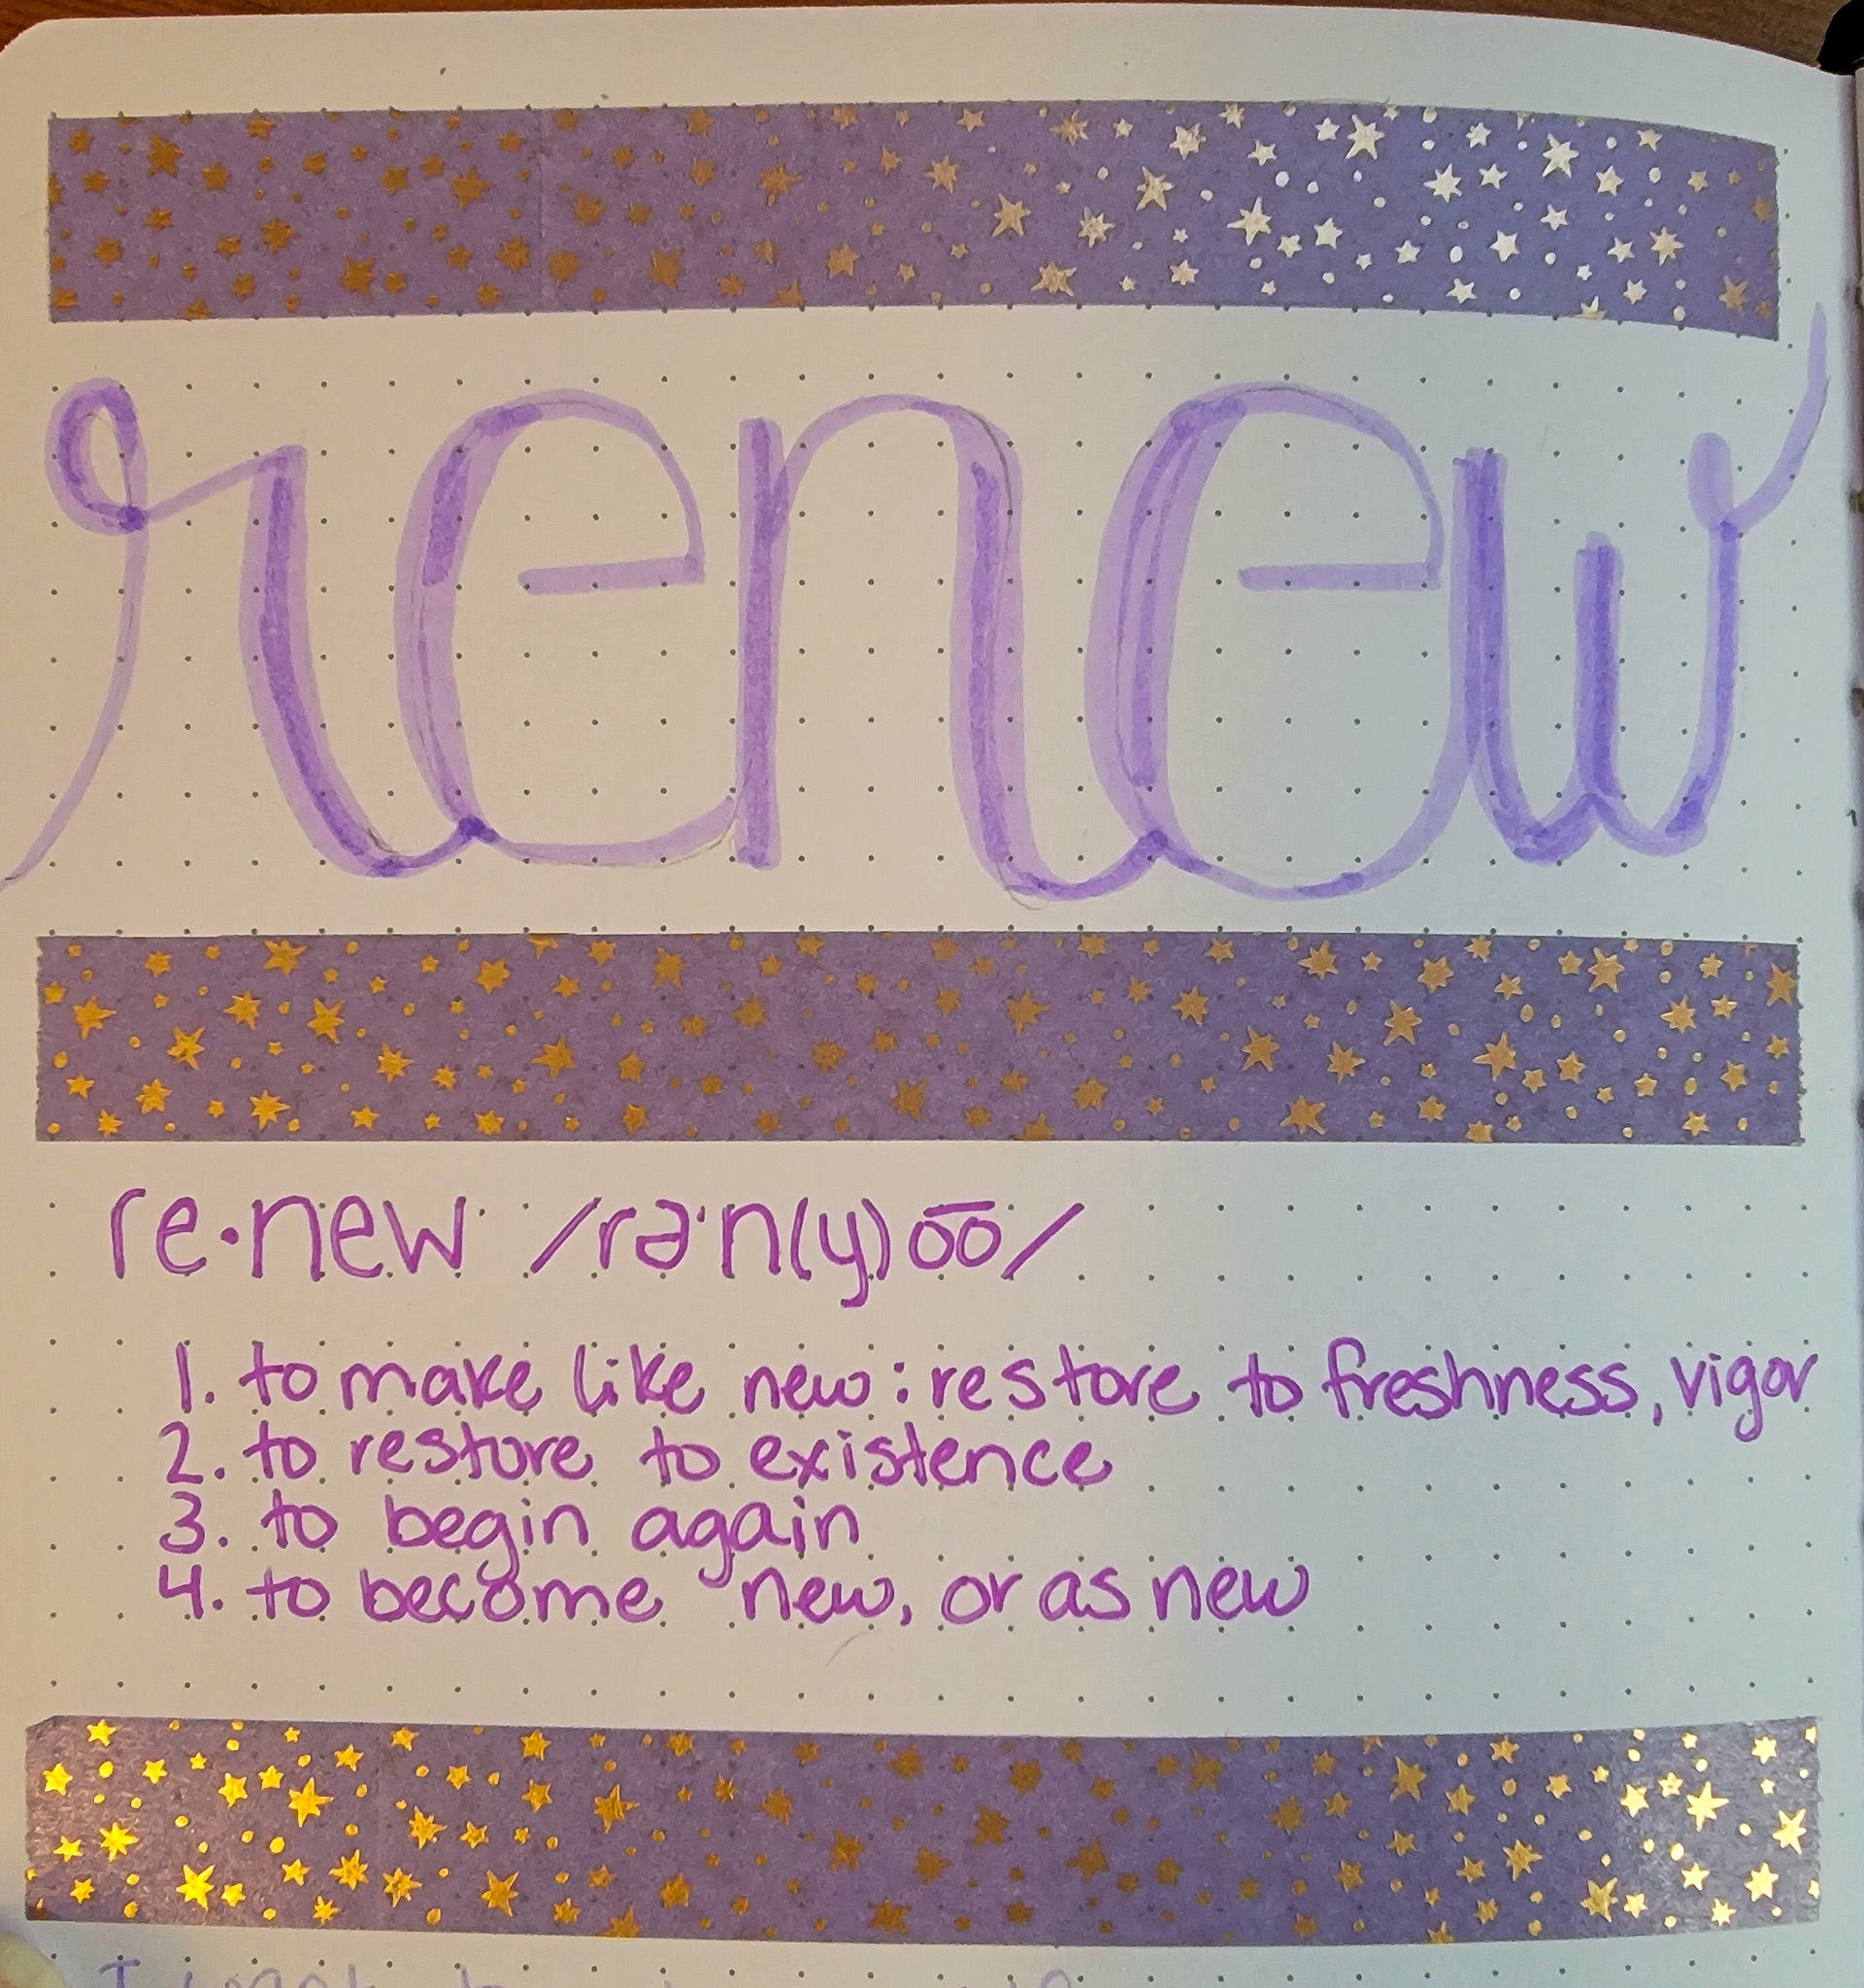 renew
re·new /rə'n(y)o͞o/
1. to make like new: restore to freshness, vigor
2. to restore to existence
3. to begin again
4. to become new, or as new